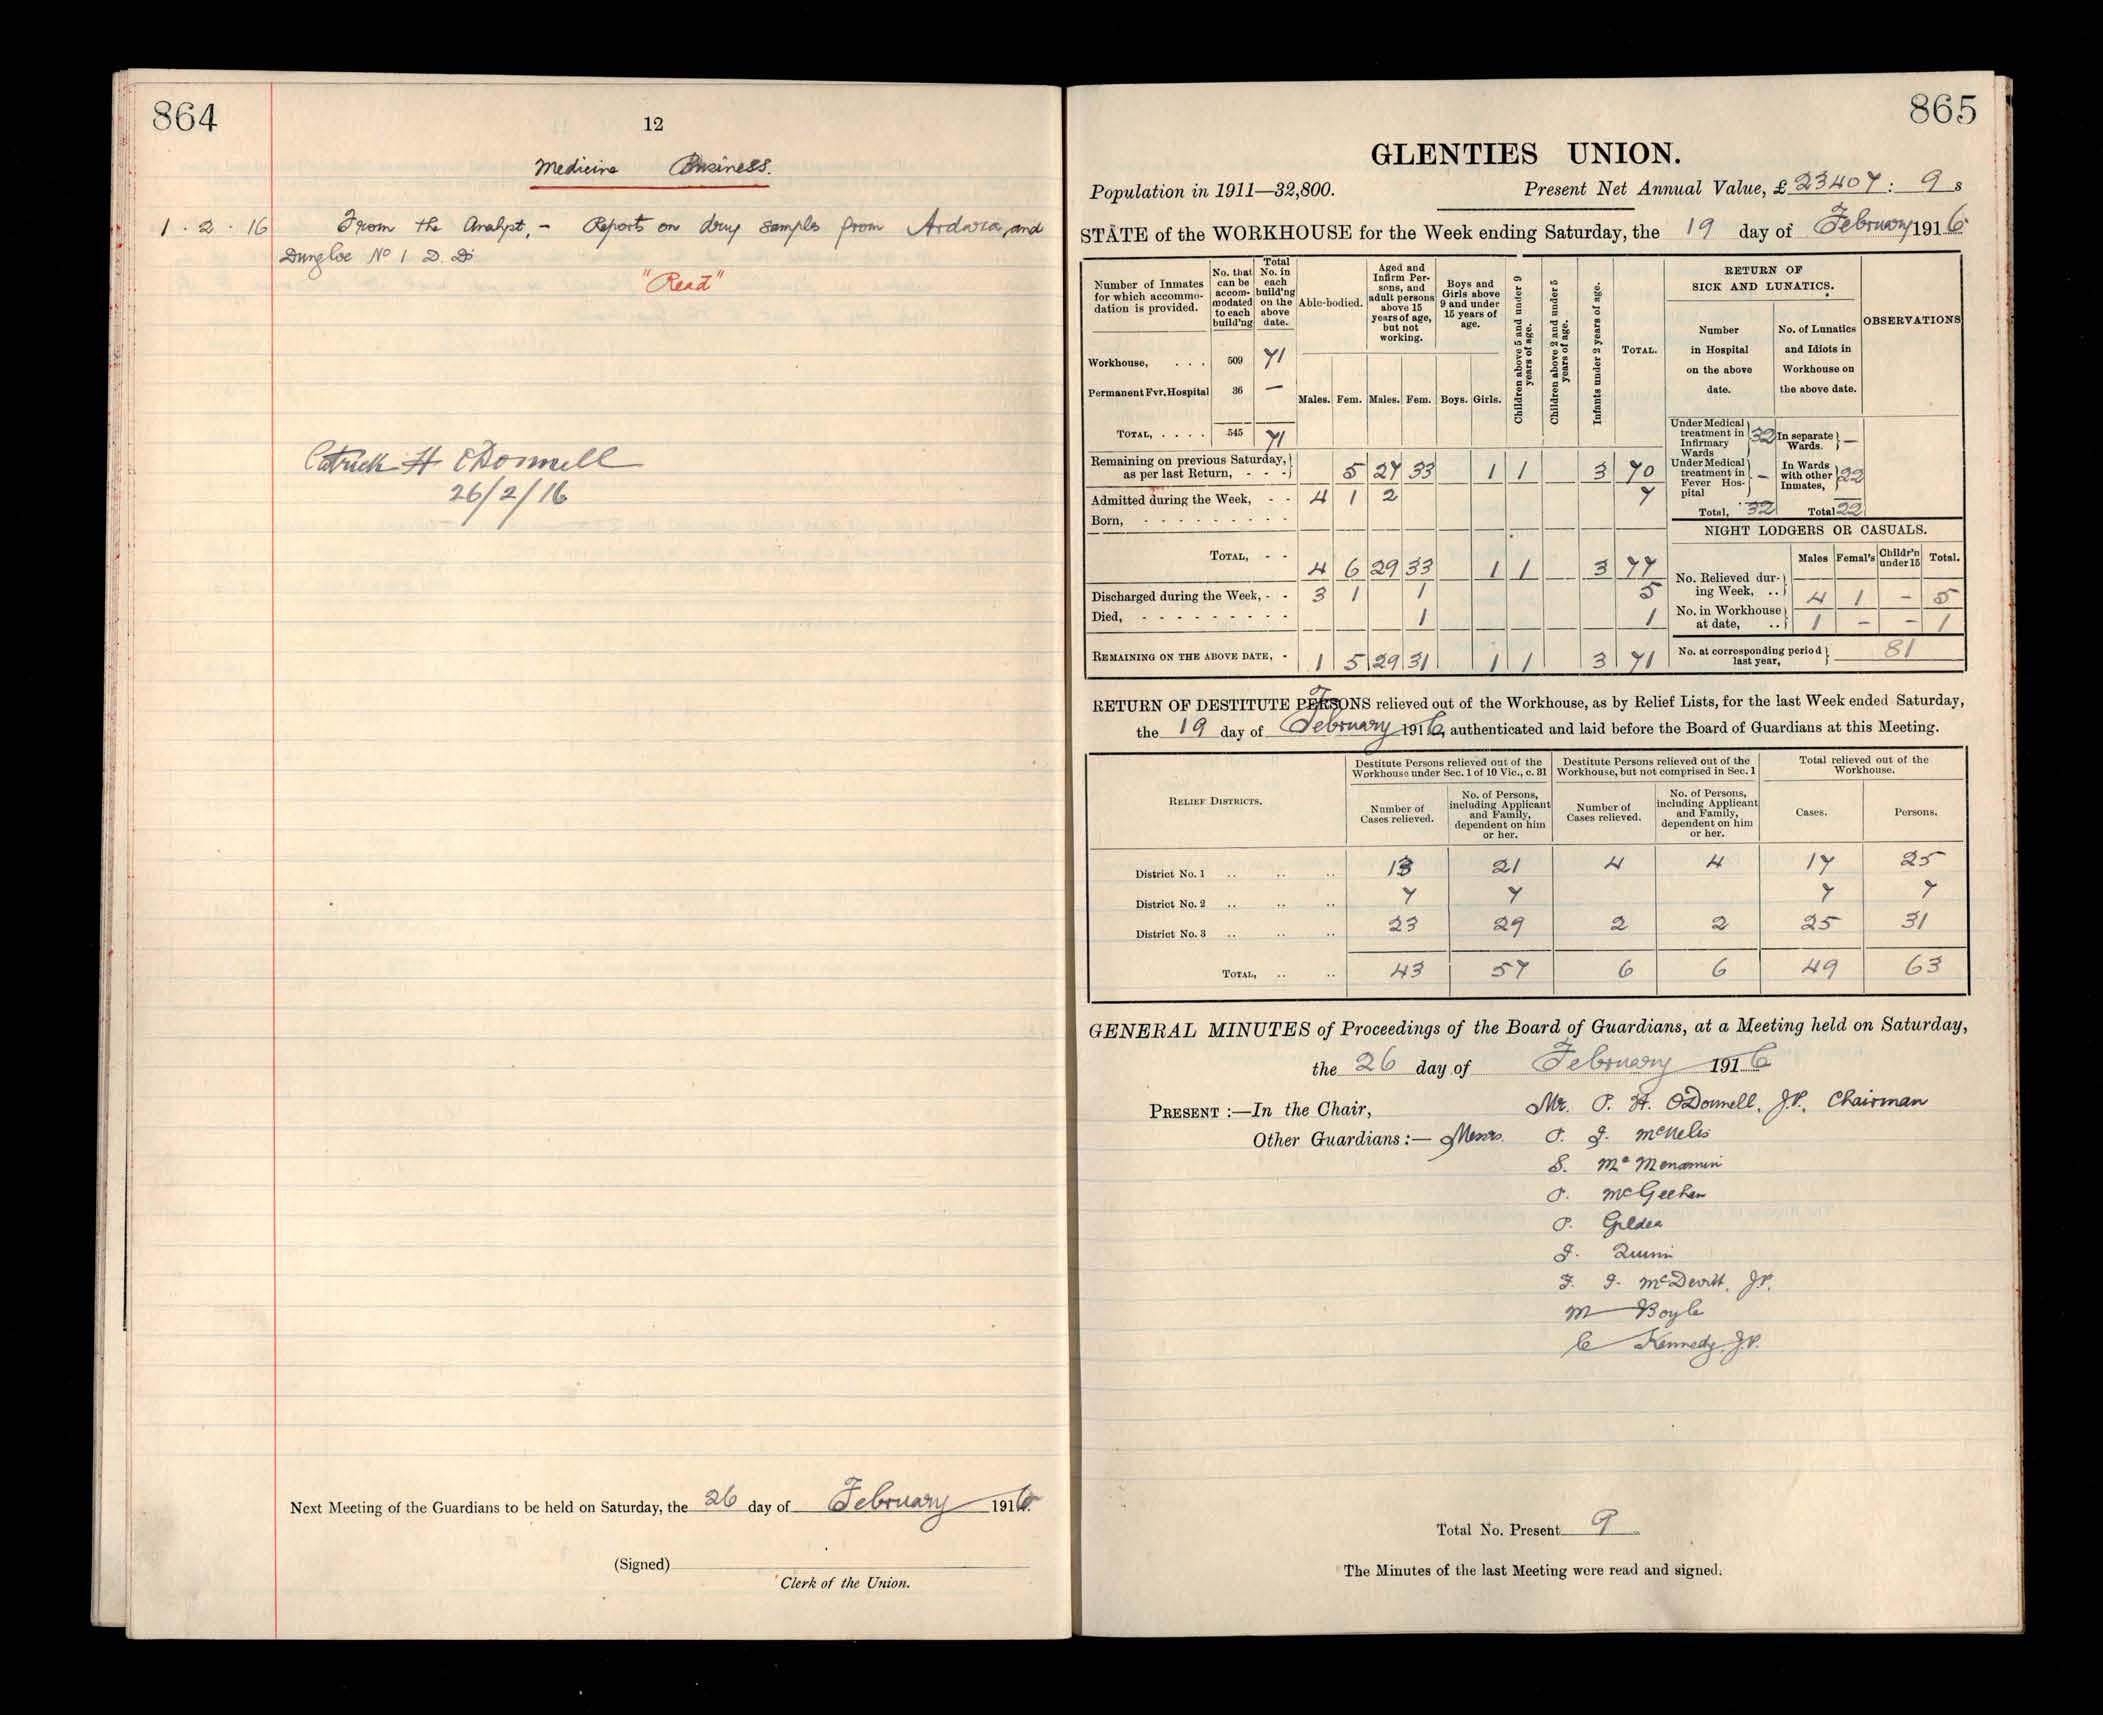 864
12
Medicine Business.
1 . 2 . 16 From the Analyst, - Reports on drug samples from Ardara, and
Dungloe No 1 D. Ds
"Read"
Patrick H O'Donnell
26/2/16
Next Meeting of the Guardians to be held on Saturday, the 26 day of February 1916.
(Signed)
Clerk of the Union.
865
GLENTIES UNION.
Population in 1911—32,800. Present Net Annual Value, £23407 : 9 s
STATE of the WORKHOUSE for the Week ending Saturday, the 19 day of February 1916
Number of Inmates for which accommodation is provided.
No. that can be accommodated to each build'ng
Total No. in each build'ng on the above date.
Able-bodied.
Aged and Infirm Persons, and adult persons above 15 years of age, but not working.
Boys and Girls above 9 and under 15 years of age.
Children above 5 and under 9 years of age.
Children above 2 and under 5 years of age.
Infants under 2 years of age.
TOTAL.
RETURN OF SICK AND LUNATICS.
Number in Hospital on the above date.
No. of Lunatics and Idiots in Workhouse on the above date.
OBSERVATIONS
Males. Fem. Males. Fem. Boys. Girls.
Workhouse, . . . 509 71
Permanent Fvr. Hospital 36 —
TOTAL, . . . . 545 71
Remaining on previous Saturday, as per last Return, - - - 5 27 33 1 1 3 70
Admitted during the Week, - - 4 1 2 7
Born, - - - - - - - - -
TOTAL, - - 4 6 29 33 1 1 3 77
Discharged during the Week, - - 3 1 1 5
Died, - - - - - - - - - 1 1
REMAINING ON THE ABOVE DATE, - 1 5 29 31 1 1 3 71
Under Medical treatment in Infirmary Wards 32 In separate Wards. —
Under Medical treatment in Fever Hospital — In Wards with other Inmates, 22
Total, 32 Total 22
NIGHT LODGERS OR CASUALS.
Males Femal's Childr'n under 15 Total.
No. Relieved during Week, .. 4 1 - 5
No. in Workhouse at date, .. 1 - - 1
No. at corresponding period last year, 81
RETURN OF DESTITUTE PERSONS relieved out of the Workhouse, as by Relief Lists, for the last Week ended Saturday,
the 19 day of February 1916, authenticated and laid before the Board of Guardians at this Meeting.
RELIEF DISTRICTS.
Destitute Persons relieved out of the Workhouse under Sec. 1 of 10 Vic., c. 31
Destitute Persons relieved out of the Workhouse, but not comprised in Sec. 1
Total relieved out of the Workhouse.
Number of Cases relieved.
No. of Persons, including Applicant and Family, dependent on him or her.
Number of Cases relieved.
No. of Persons, including Applicant and Family, dependent on him or her.
Cases.
Persons.
District No. 1 .. .. .. 13 21 4 4 17 25
District No. 2 .. .. .. 7 7 7 7
District No. 3 .. .. .. 23 29 2 2 25 31
TOTAL, .. .. 43 57 6 6 49 63
GENERAL MINUTES of Proceedings of the Board of Guardians, at a Meeting held on Saturday,
the 26 day of February 1916
PRESENT :—In the Chair, Mr. P. H. O'Donnell, J.P. Chairman
Other Guardians :— Messrs. P. J. McNelis
S. McMenamin
P. McGeehan
P. Gildea
J. Quinn
F. J. McDevitt, J.P.
M Boyle
C Kennedy J.P.
Total No. Present 9
The Minutes of the last Meeting were read and signed.